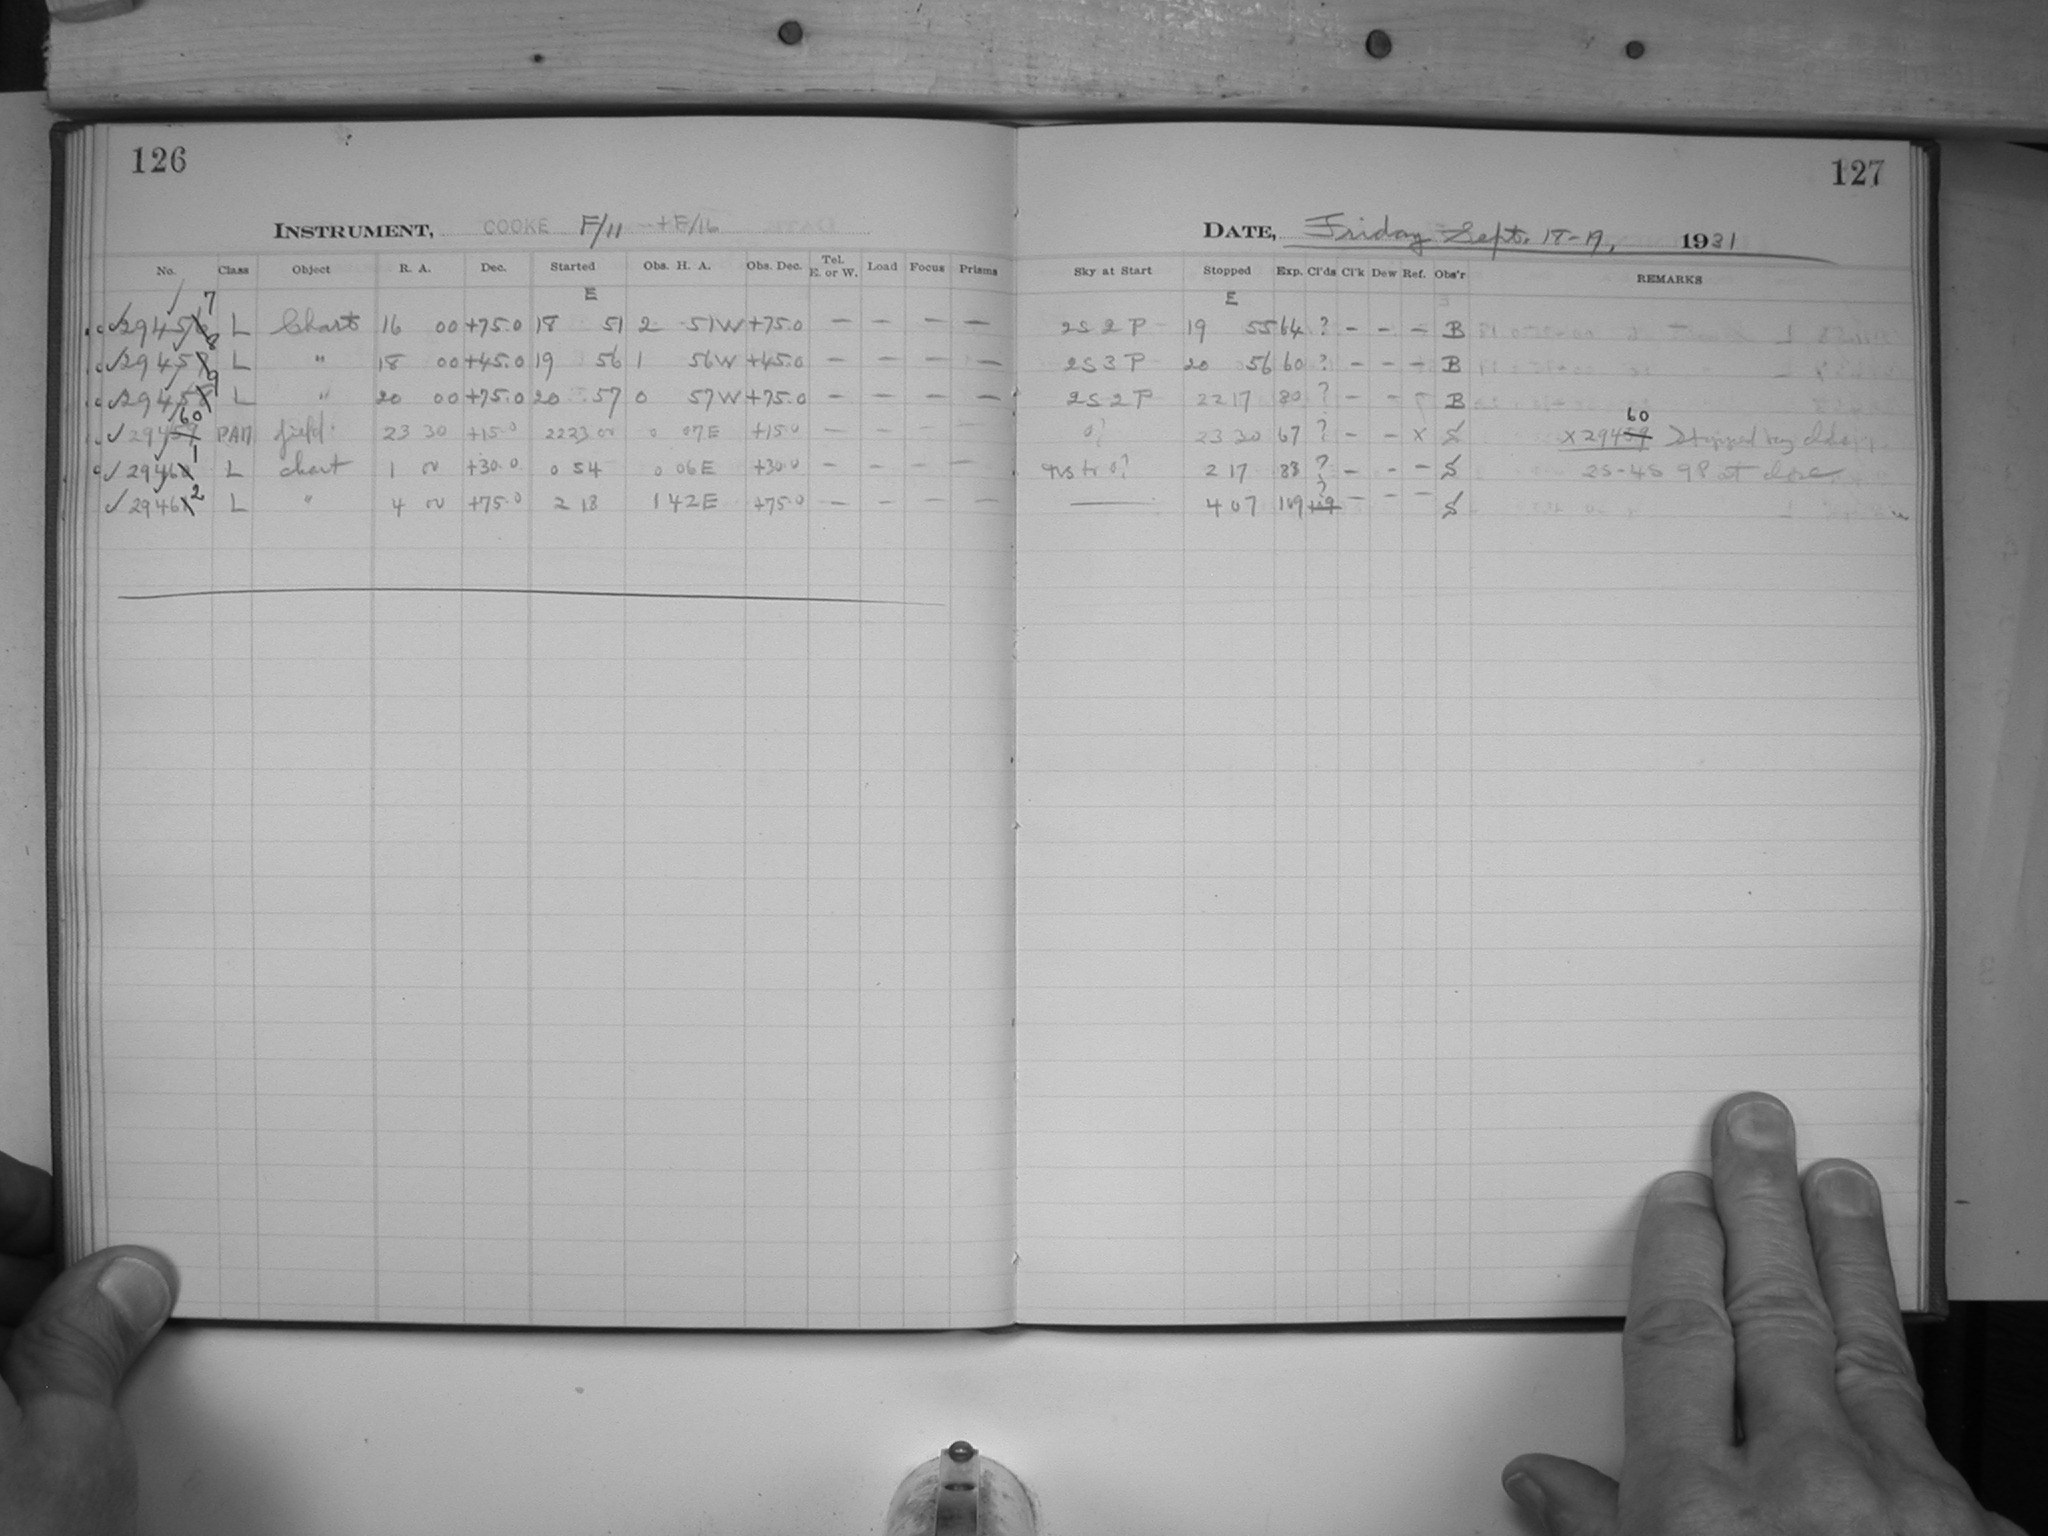 126
INSTRUMENT, COOKE F/11 + F/16
No. Class Object R. A. Dec. Started Obs. H. A. Obs. Dec. Tel. E. or W. Load Focus Prisms
E
✓294567 L Chart 16 00 +75.0 18 51 2 51W +75.0 — — — —
✓294578 L " 18 00 +45.0 19 56 1 56W +45.0 — — — —
✓294589 L " 20 00 +75.0 20 57 0 57W +75.0 — — — —
60
✓29459 PAN field 23 30 +15.0 22 23 0 07E +15.0 — — — —
✓294601 L chart 1 +30.0 0 54 0 06E +30.0 — — — —
✓294612 L " 4 +75.0 2 18 1 42E +75.0 — — — —
127
DATE, Friday Sept. 18-19, 1931
Sky at Start Stopped Exp. Cl'ds Cl'k Dew Ref. Obs'r REMARKS
E
2S 2P 19 55 64 ? – – – B
2S 3P 20 56 60 ? – – – B
2S 2P 22 17 80 ? – – B
60
0? 23 30 67 ? – – X S X 29459 Stopped by
0? 2 17 83 ? – – – S 2S-4S 98 at close
— 4 07 109 ? – – – S